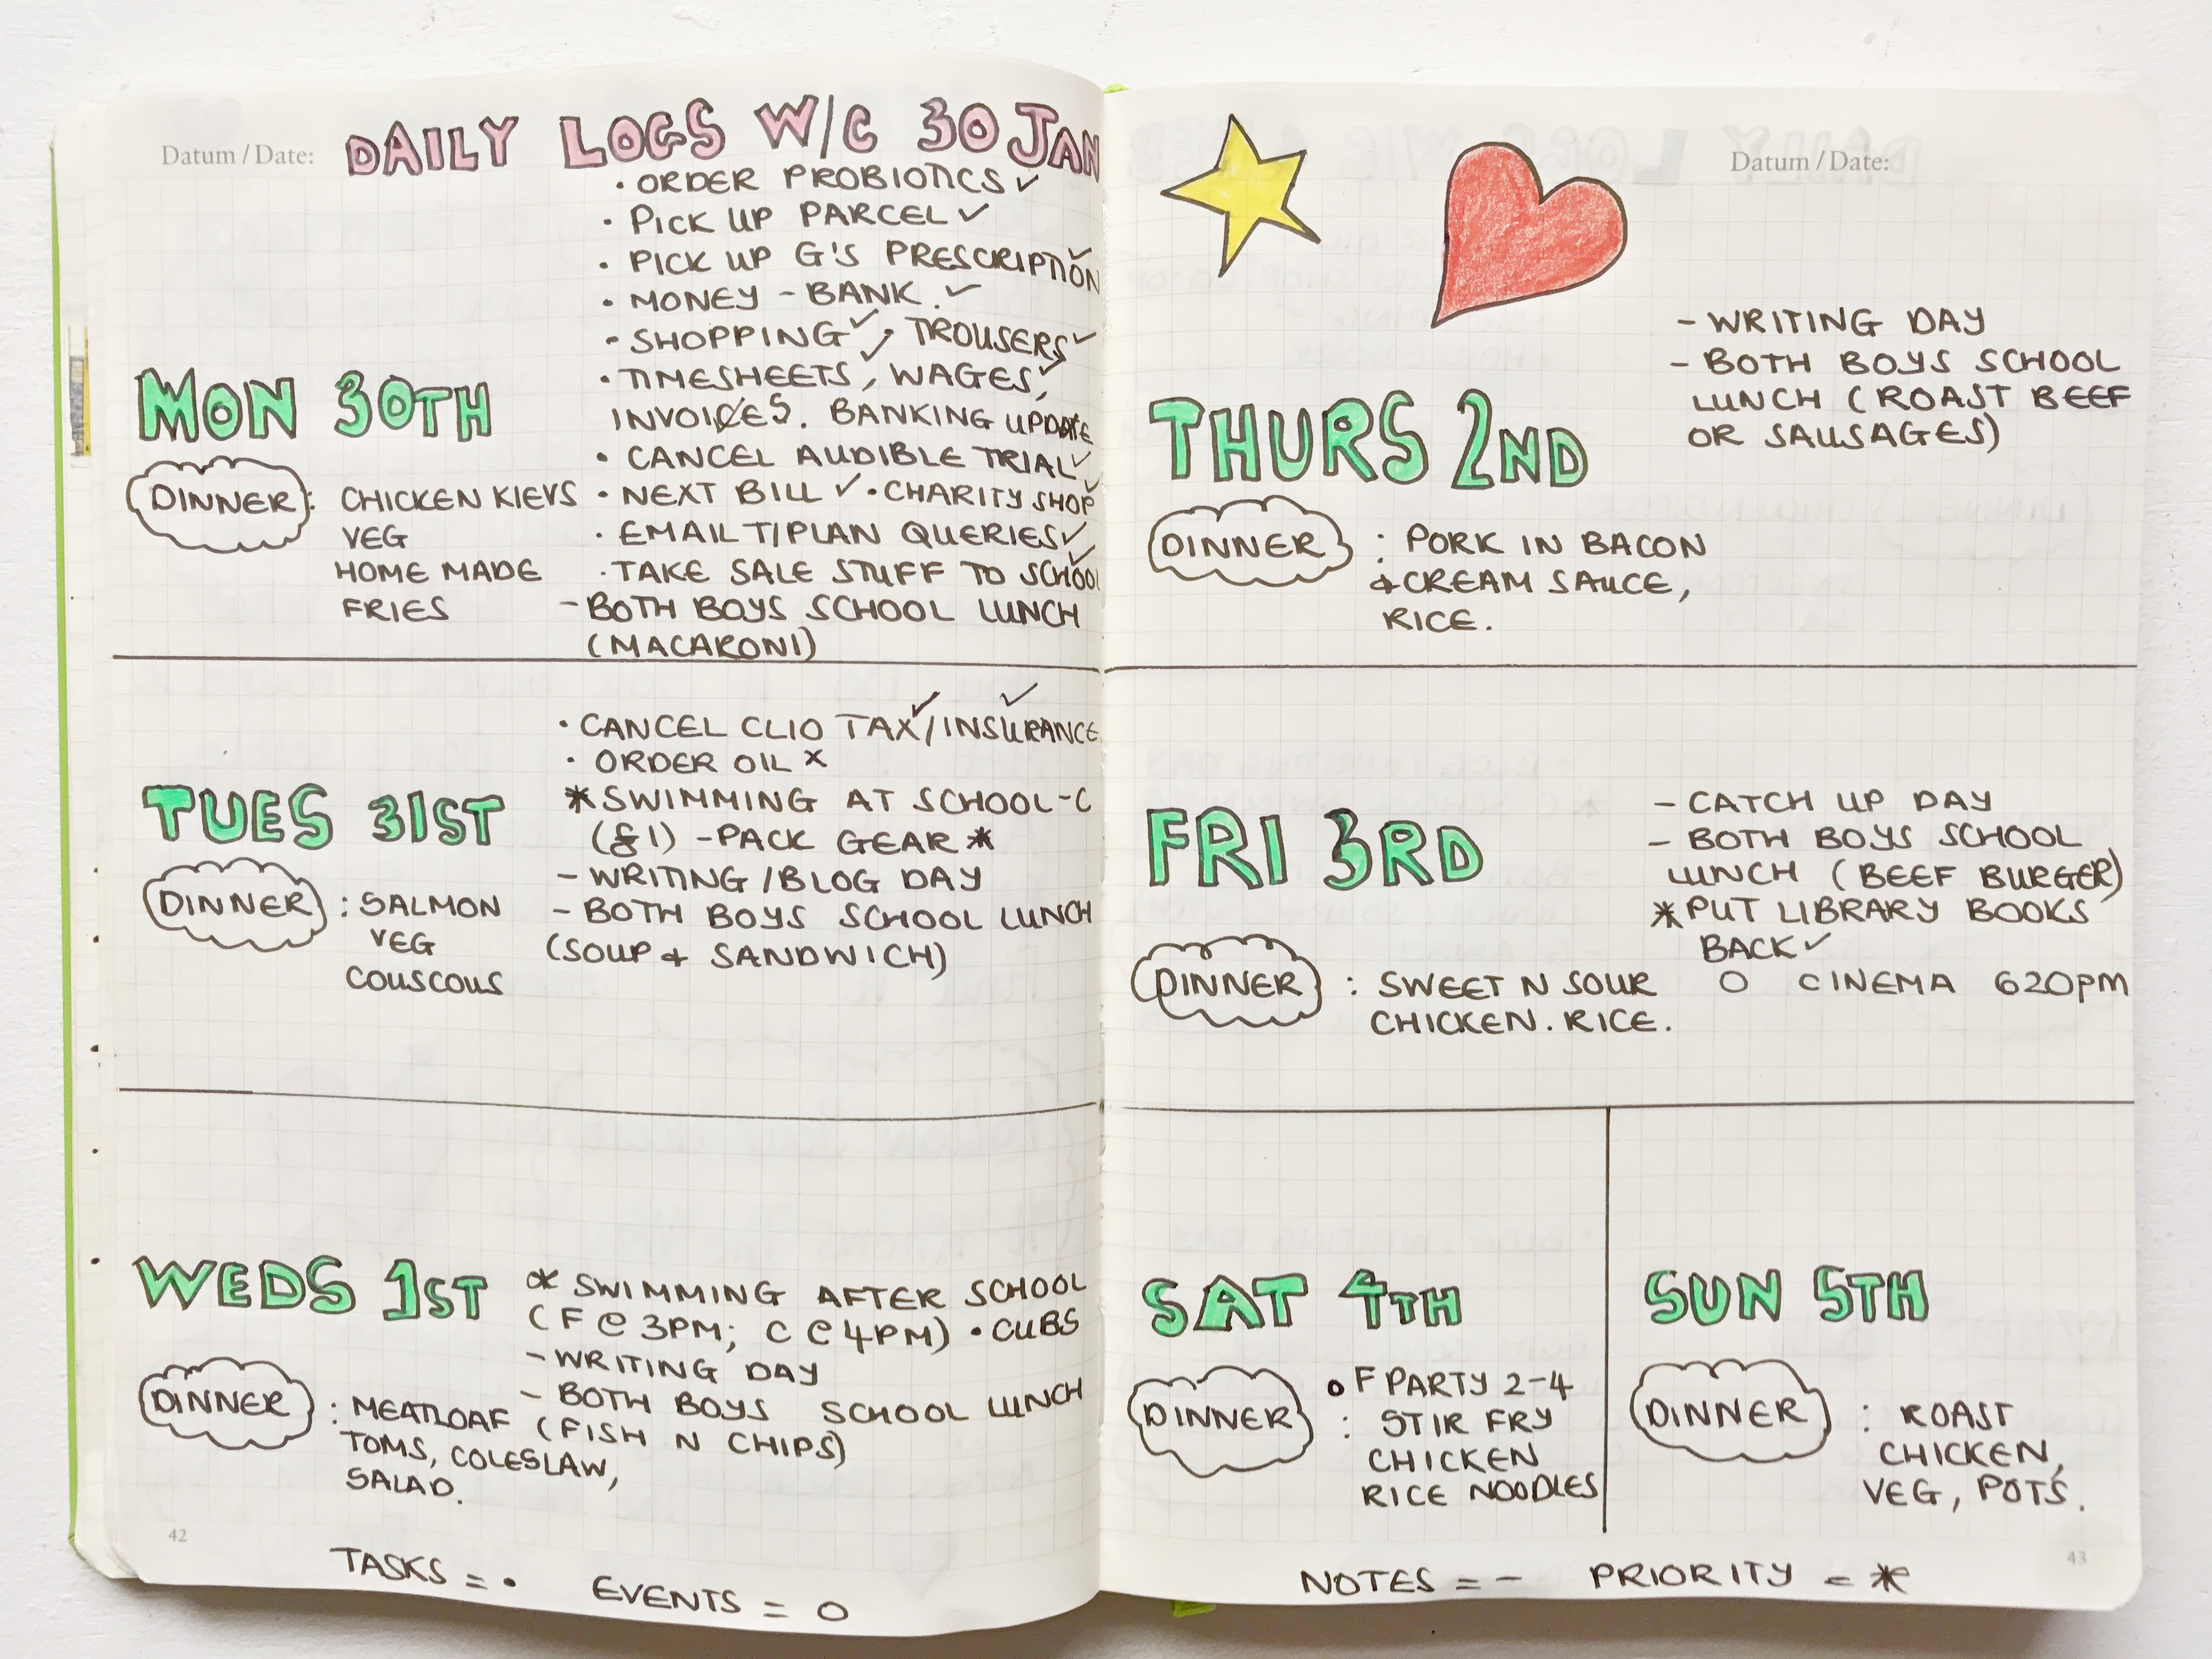 Datum / Date:
DAILY LOGS W/C 30 JAN
• ORDER PROBIOTICS ✓
• PICK UP PARCEL ✓
• PICK UP G'S PRESCRIPTION ✓
• MONEY - BANK. ✓
• SHOPPING ✓ • TROUSERS ✓
• TIMESHEETS ✓, WAGES ✓,
INVOICES. BANKING UPDATE
• CANCEL AUDIBLE TRIAL ✓
• NEXT BILL ✓ • CHARITY SHOP ✓
• EMAIL T/PLAN QUERIES ✓
• TAKE SALE STUFF TO SCHOOL ✓
- BOTH BOYS SCHOOL LUNCH
(MACARONI)
MON 30TH
DINNER: CHICKEN KIEVS
VEG
HOME MADE
FRIES
TUES 31ST
• CANCEL CLIO TAX ✓/INSURANCE ✓
• ORDER OIL X
* SWIMMING AT SCHOOL - C
(£1) - PACK GEAR *
- WRITING/BLOG DAY
- BOTH BOYS SCHOOL LUNCH
(SOUP & SANDWICH)
DINNER: SALMON
VEG
COUSCOUS
WEDS 1ST
O* SWIMMING AFTER SCHOOL
(F @ 3PM; C @ 4PM) • CUBS
- WRITING DAY
- BOTH BOYS SCHOOL LUNCH
(FISH N CHIPS)
DINNER: MEATLOAF
TOMS, COLESLAW,
SALAD.
42
TASKS = • EVENTS = O
Datum / Date:
THURS 2ND
- WRITING DAY
- BOTH BOYS SCHOOL
LUNCH (ROAST BEEF
OR SAUSAGES)
DINNER: PORK IN BACON
& CREAM SAUCE,
RICE.
FRI 3RD
- CATCH UP DAY
- BOTH BOYS SCHOOL
LUNCH (BEEF BURGER)
* PUT LIBRARY BOOKS
BACK ✓
O CINEMA 620pm
DINNER: SWEET N SOUR
CHICKEN. RICE.
SAT 4TH
O F PARTY 2-4
DINNER: STIR FRY
CHICKEN
RICE NOODLES
SUN 5TH
DINNER: ROAST
CHICKEN,
VEG, POTS.
43
NOTES = - PRIORITY = *